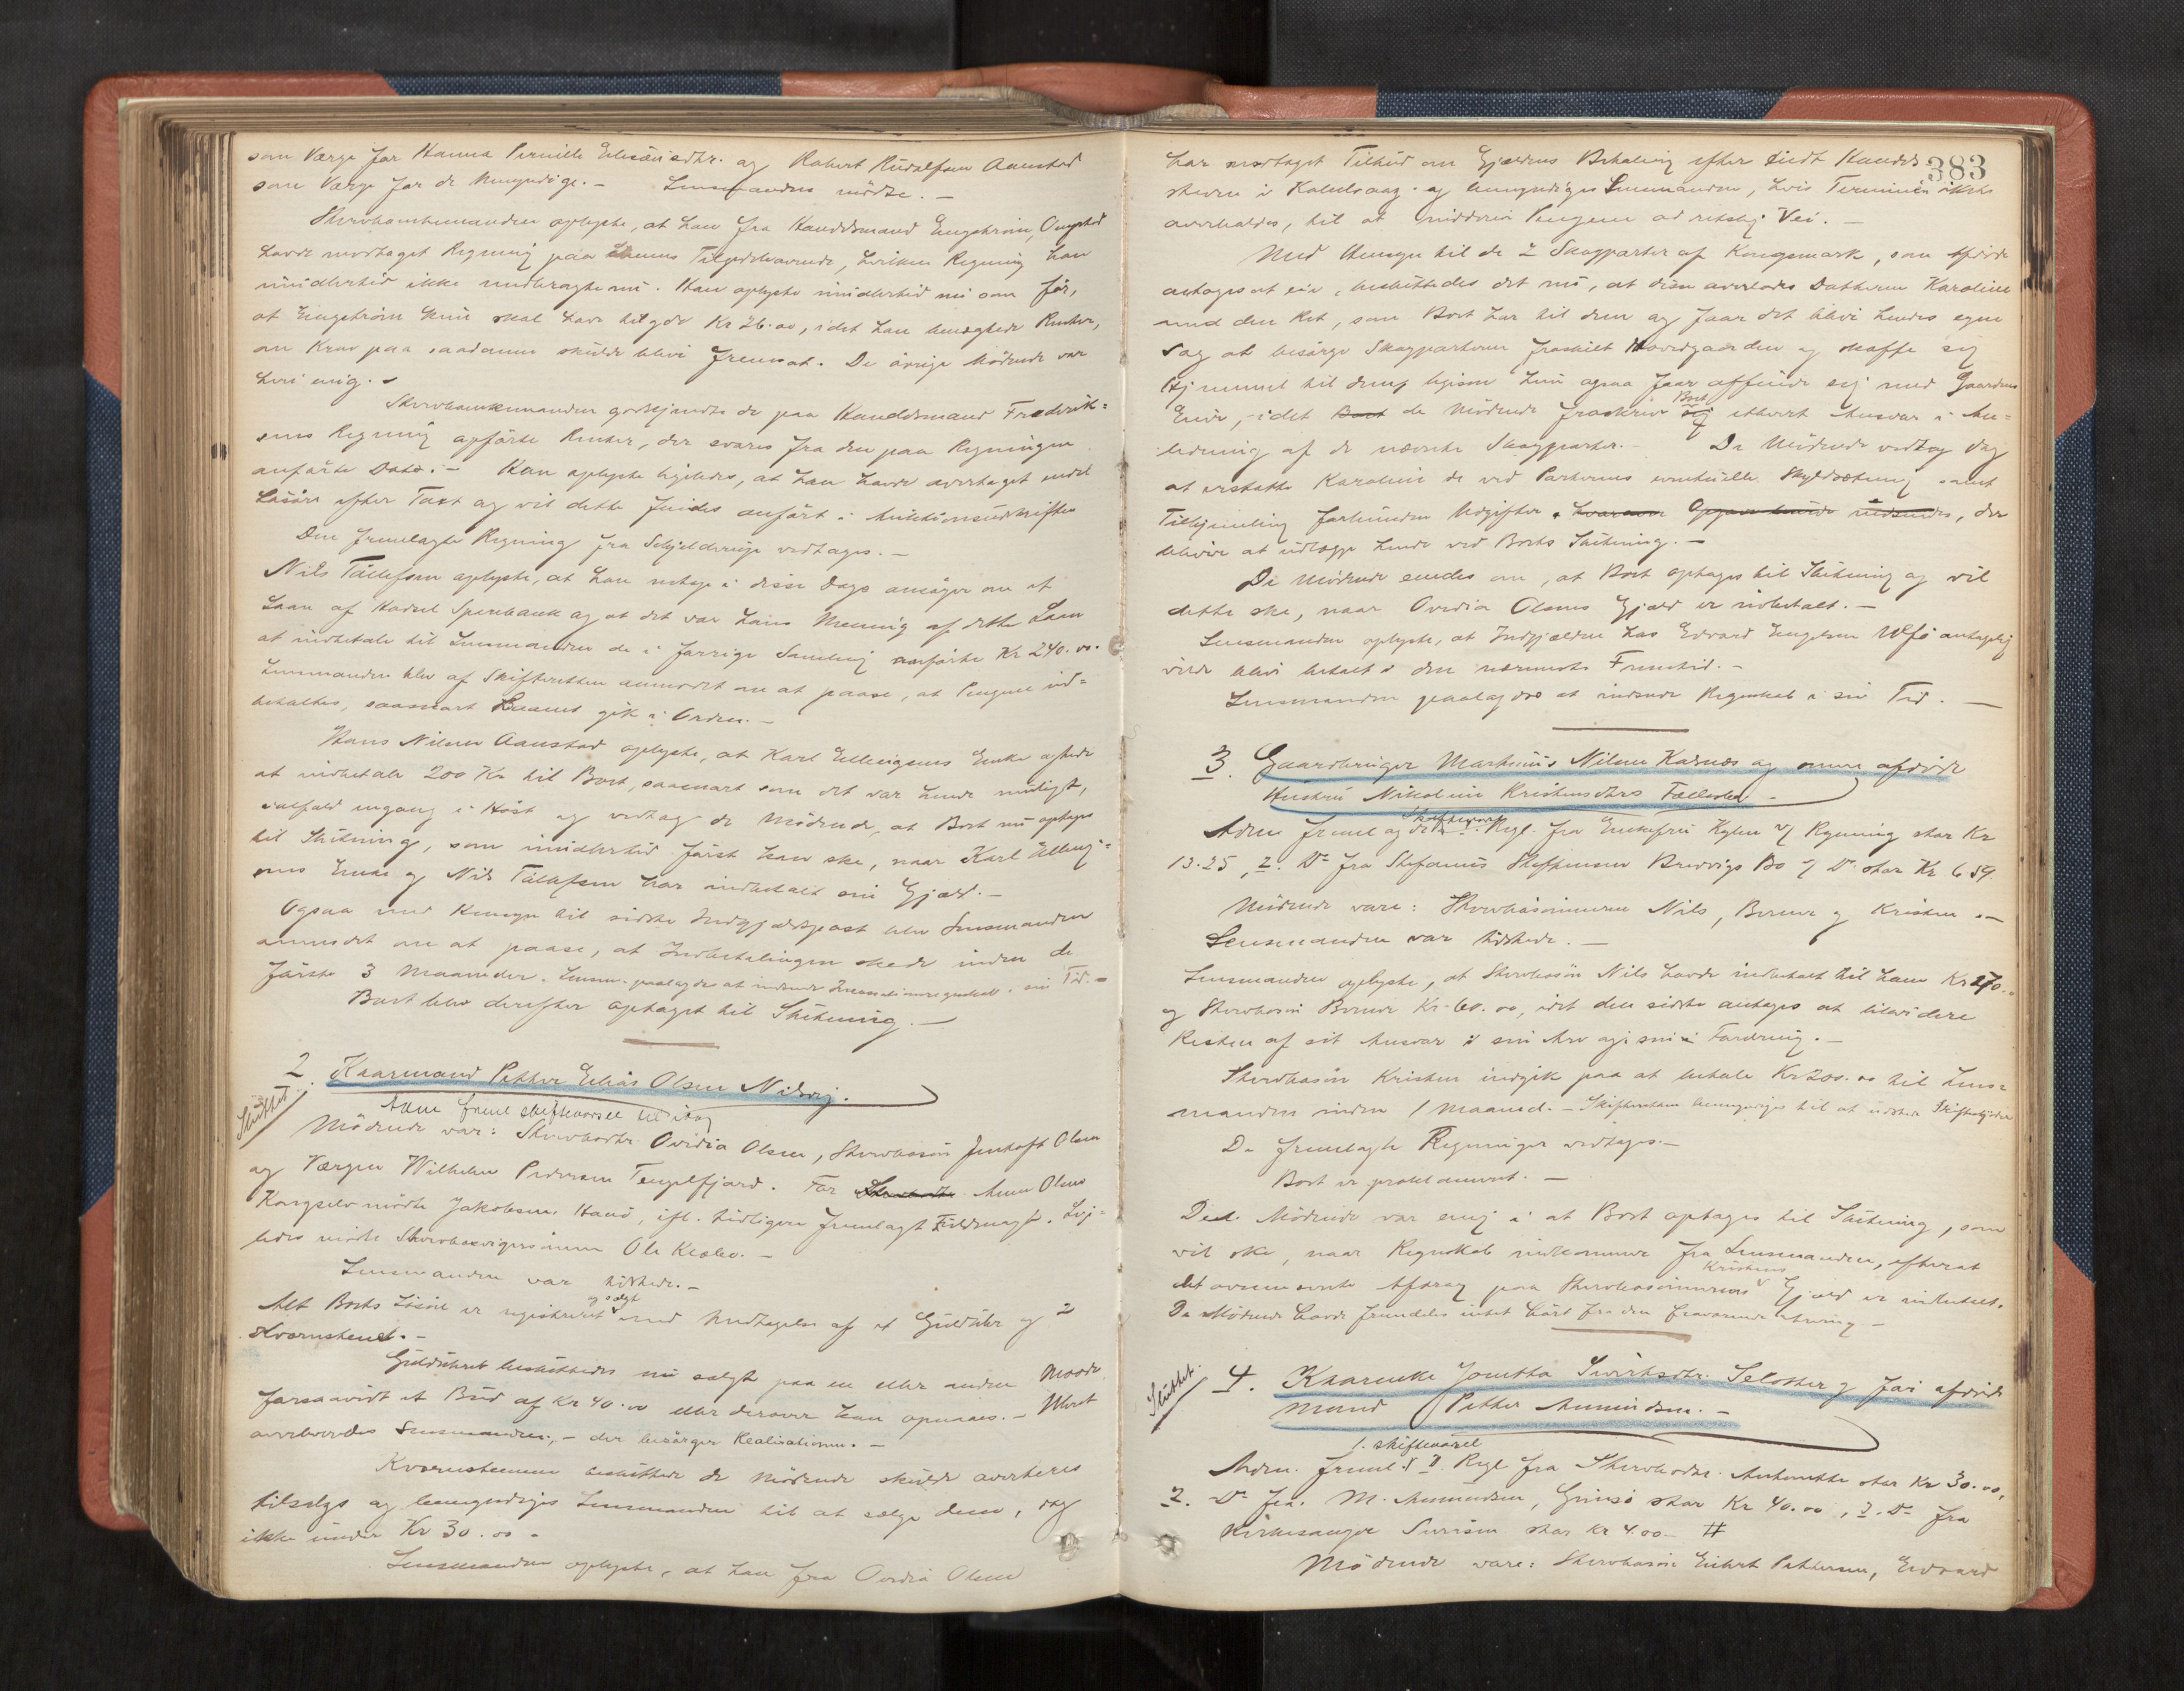 som Værge for Hanna Pernille Eliasdtr. og Robert Rudolfsen Aanstad
som Værge for de Umyndige. — Lensmanden mødte. —
Stervboenkemanden oplyste, at han fra Handelsmand Engstrøm, Ongstad
havde modtaget Regning paa hannes Tilgodehavende, hvilken Regning han
imidlertid ikke medbragte nu. Han oplyste imidlertid nu som før,
at Engstrøm kun skal have tilgode Kr 26.00, idet han benægtede Renter,
om Krav paa saadanne skulde blive fremsat. De øvrige Mødende var
heri enig. —
Stervboenkemanden godkjendte de paa Handelsmand Frederik-
sens Regning opførte Renter, der svares fra den paa Regningen
anførte Dato. — Han oplyste ligeledes, at han havde overtaget endel
Løsøre efter Taxt og vil dette findes anført i Auktionsudskriften
Den fremlagte Regning fra Schjelderup vedtages. —
Nils Tollefsen oplyste, at han netop i disse Dage ansøger om et
Laan af Hadsel Sparebank og at det var hans Mening af dette Laan
at indbetale til Lensmanden de i forrige Samling anførte Kr 240.00.
Lensmanden blev af Skifteretten anmodet om at paase, at Pengene ind-
betaltes, saasnart Laanet gik i Orden. —
Hans Nilsen Aanstad oplyste, at Karl Ellingsens Enke agtede
at indbetale 200 Kr til Boet, saasnart som det var hende muligt,
ialfald engang i Høst og vedtog de Mødende, at Boet nu optages
til Slutning, som imidlertid først kan ske, naar Karl Elling-
sens Enke og Nils Tollefsen har indbetalt sin Gjæld. —
Ogsaa med Hensyn til sidste Indgjældspost blev Lensmanden
anmodet om at paase, at Indbetalingen skede inden de
første 3 Maaneder. Lensm. paalagdes at indsende Incassationsregnskab i sin Tid. —
Boet blev derefter optaget til Slutning. —
2. Kaarmand Petter Elias Olsen Nidvig.
Sluttet
Adm freml skiftevarsel til idag
Mødende var: Stervbodtr. Ovidia Olsen, Stervbosøn Jentoft Olsen
og Værgen Wilhelm Pedersen Tengelfjord. For Anne Olsens
mødte Jakobsen, Hanø, ifl. tidligere fremlagt Fuldmagt. Lige-
ledes mødte Stervbosvigersønnen Ole Klæbo. —
Lensmanden var tilstede. —
Alt Boets Løsøre er registreret og solgt med Undtagelse af et Guldur og 2
Kvernstene. —
Gulduret besluttedes nu solgt paa en eller anden Maade
forsaavidt et Bud af Kr 40.00 eller derover kan opnaaes. — Uhret
overleveredes Lensmanden, — der besørger Realisationen. —
Kvernstenene besluttede de Mødende skulde averteres
tilsalgs og bemyndiges Lensmanden til at sælge dem, dog
ikke under Kr 30.00. —
Lensmanden oplyste, at han fra Ovidia Olsen
383
har modtaget Tilbud om Gjældens Betaling efter endt
i Kabelvaag. og bemyndiges Lensmanden, hvis Terminen ikke
overholdes, til at inddrive Pengene ad retslig Vei. —
Med Hensyn til de 2 Skogparter af Kongsmark, som Afdøde
antages at eie, besluttedes det nu, at disse overlades Datteren Karoline
med den Ret, som Boet har til dem og faar det blive hendes egen
Sag at besørge Skogparterne fraskilt Hovedgaarden og skaffe sig
Hjemmel til dem, ligesom hun ogsaa faar affinde sig med Gaardens
Eier, — idet Boet de Mødende fraskriver Boet ethvert Ansvar i An-
ledning af de nævnte Skogparter. — De Mødende vedtog dog
at erstatte Karoline de ved Parternes eventuelle Skyldsætning samt
Tilhjemling forbundne Udgifter, hvorom Opgave burde indsendes, der
bliver at udlægge hende ved Boets Slutning. —
De Mødende enedes om, at Boet optages til Slutning og vil
dette ske, naar Ovidia Olsens Gjæld er indbetalt. —
Lensmanden oplyste, at Indgjælden hos Edvard Engelsen Ulfø antagelig
vilde blive betalt i den nærmeste Fremtid. —
Lensmanden paalagdes at indsende Regnskab i sin Tid. —
3. Gaardbruger Martinus Nilsen Kadnæs og omme afdøde
Hustru Nikoline Kristensdtrs Fællesbo. —
Adm. fremlagde Skiftevarsel 1. Regl. fra Enkefru Kylen v/ Regning stor Kr
13.25, 2. Do fra Stefanus Steffensen Bredvigs Bo / Do stor Kr 6 59.
Mødende vare: Stervbosønnerne Nils, Berner og Kristen. —
Lensmanden var tilstede. —
Lensmanden oplyste, at Stervbosøn Nils havde indbetalt til ham Kr 270.
og Stervbosøn Berner Kr. 60.00, idet den sidste antages at likvidere
Resten af sit Ansvar i sin Arv og i sin Fordring. —
Stervbosøn Kristen indgik paa at betale Kr 200.00 til Lens-
manden inden 1 Maaned. — Skifteretten bemyndiges til at udstede Skifteskjøder
De fremlagte Regninger vedtages. —
Boet er proklameret. —
De Mødende var enig i at Boet optages til Slutning, som
vil ske, naar Regnskab indkommer fra Lensmanden, efterat
det ovennævnte Afdrag paa Stervbosønnens Kristens Gjæld er indbetalt.
De Mødende havde fremdeles intet hørt fra den fraværende Arving —
Sluttet
4. Kaarenke Jonetta Sivertsdtr. Selotter og før afdøde
Mand Petter Amundsen. —
1. skiftevarsel
Adm. freml. 1. Regl fra Stervbodtr. Antonette stor Kr 30.00,
2. Do fra M. Amundsen, Grimsø stor Kr 40.00, 3. Do fra
Kirkesanger Sivertsen stor Kr 4.00 — #
Mødende vare: Stervbosøn Enhart Pettersen, Edvard